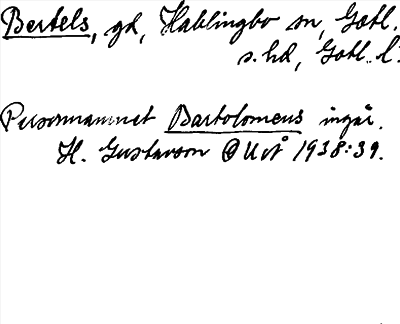 Bertels, gd, Hablingbo sn, Gotl.
s. hd, Gotl. l.
Personnamnet Bartolomeus ingår.
H. Gustavson OUÅ 1938:39.